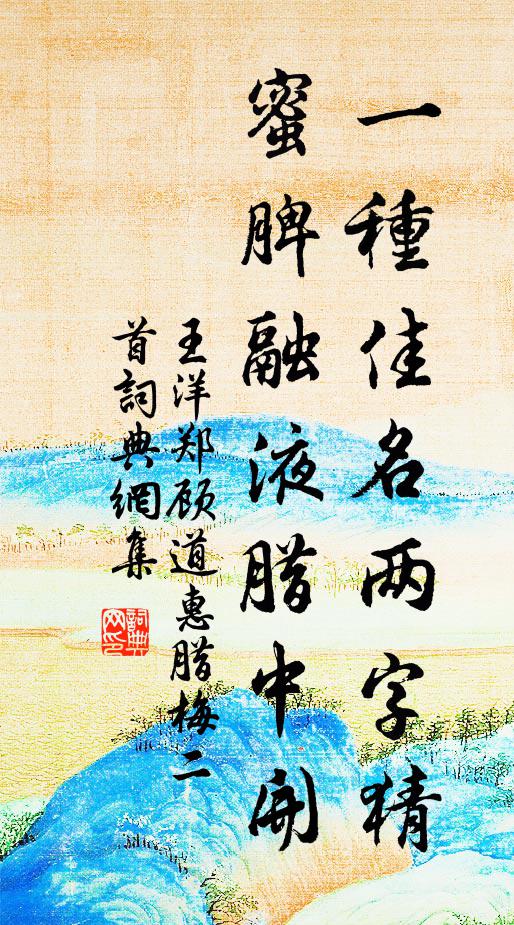 一種佳名两字猜
蜜脾融液腊中開
王洋郑顾道惠腊梅二
首詞典網集
詞典网印